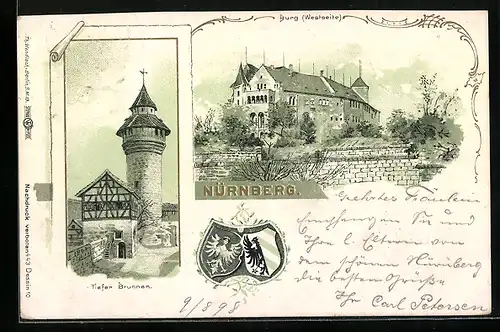 Burg (Westseite)
NÜRNBERG.
Tiefer Brunnen.
Nachdruck verboten 443 Dessin 10
Geehrtes Fräulein
empfangen Sie und
Ihre l. Eltern von
dem schönen Nürnberg
die besten Grüße
Ihr Carl Petersen
9/8 98